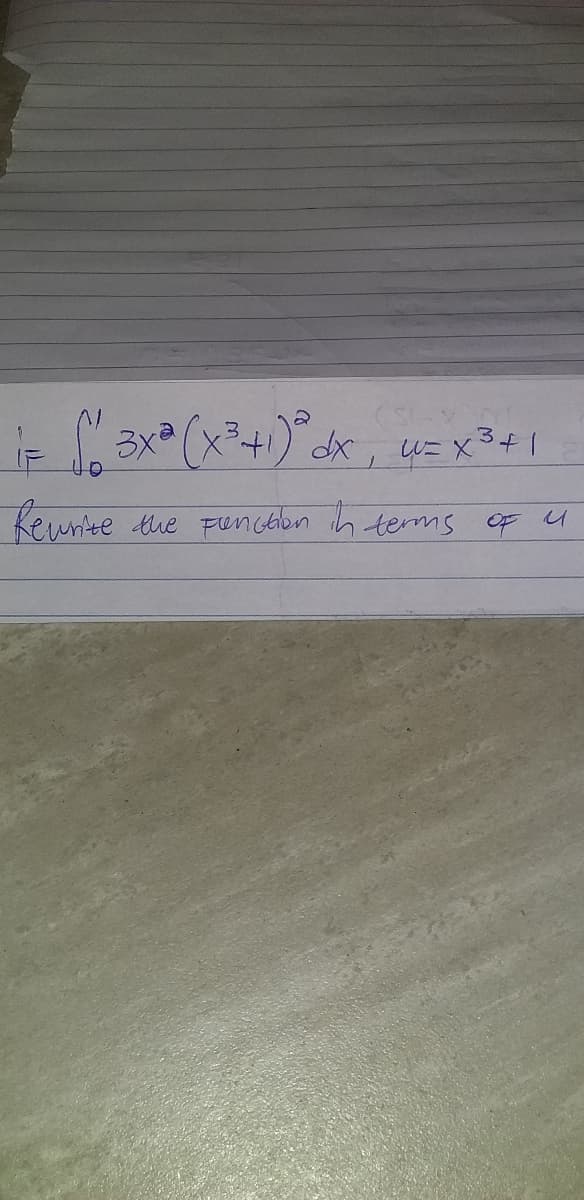 if ∫₀¹ 3x²(x³+1)² dx, u= x³+1
Rewrite the Function in terms OF u